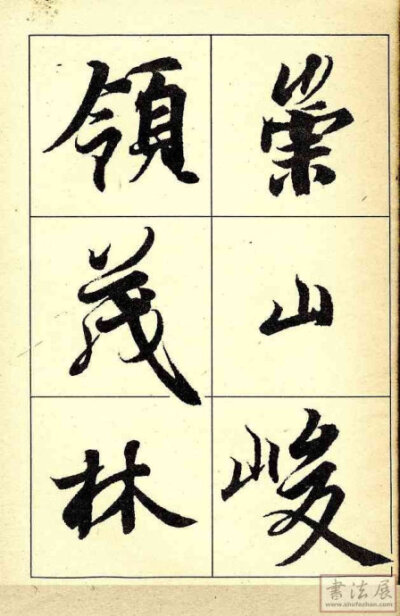 崇山峻
領茂林
書法展
www.shufazhan.com